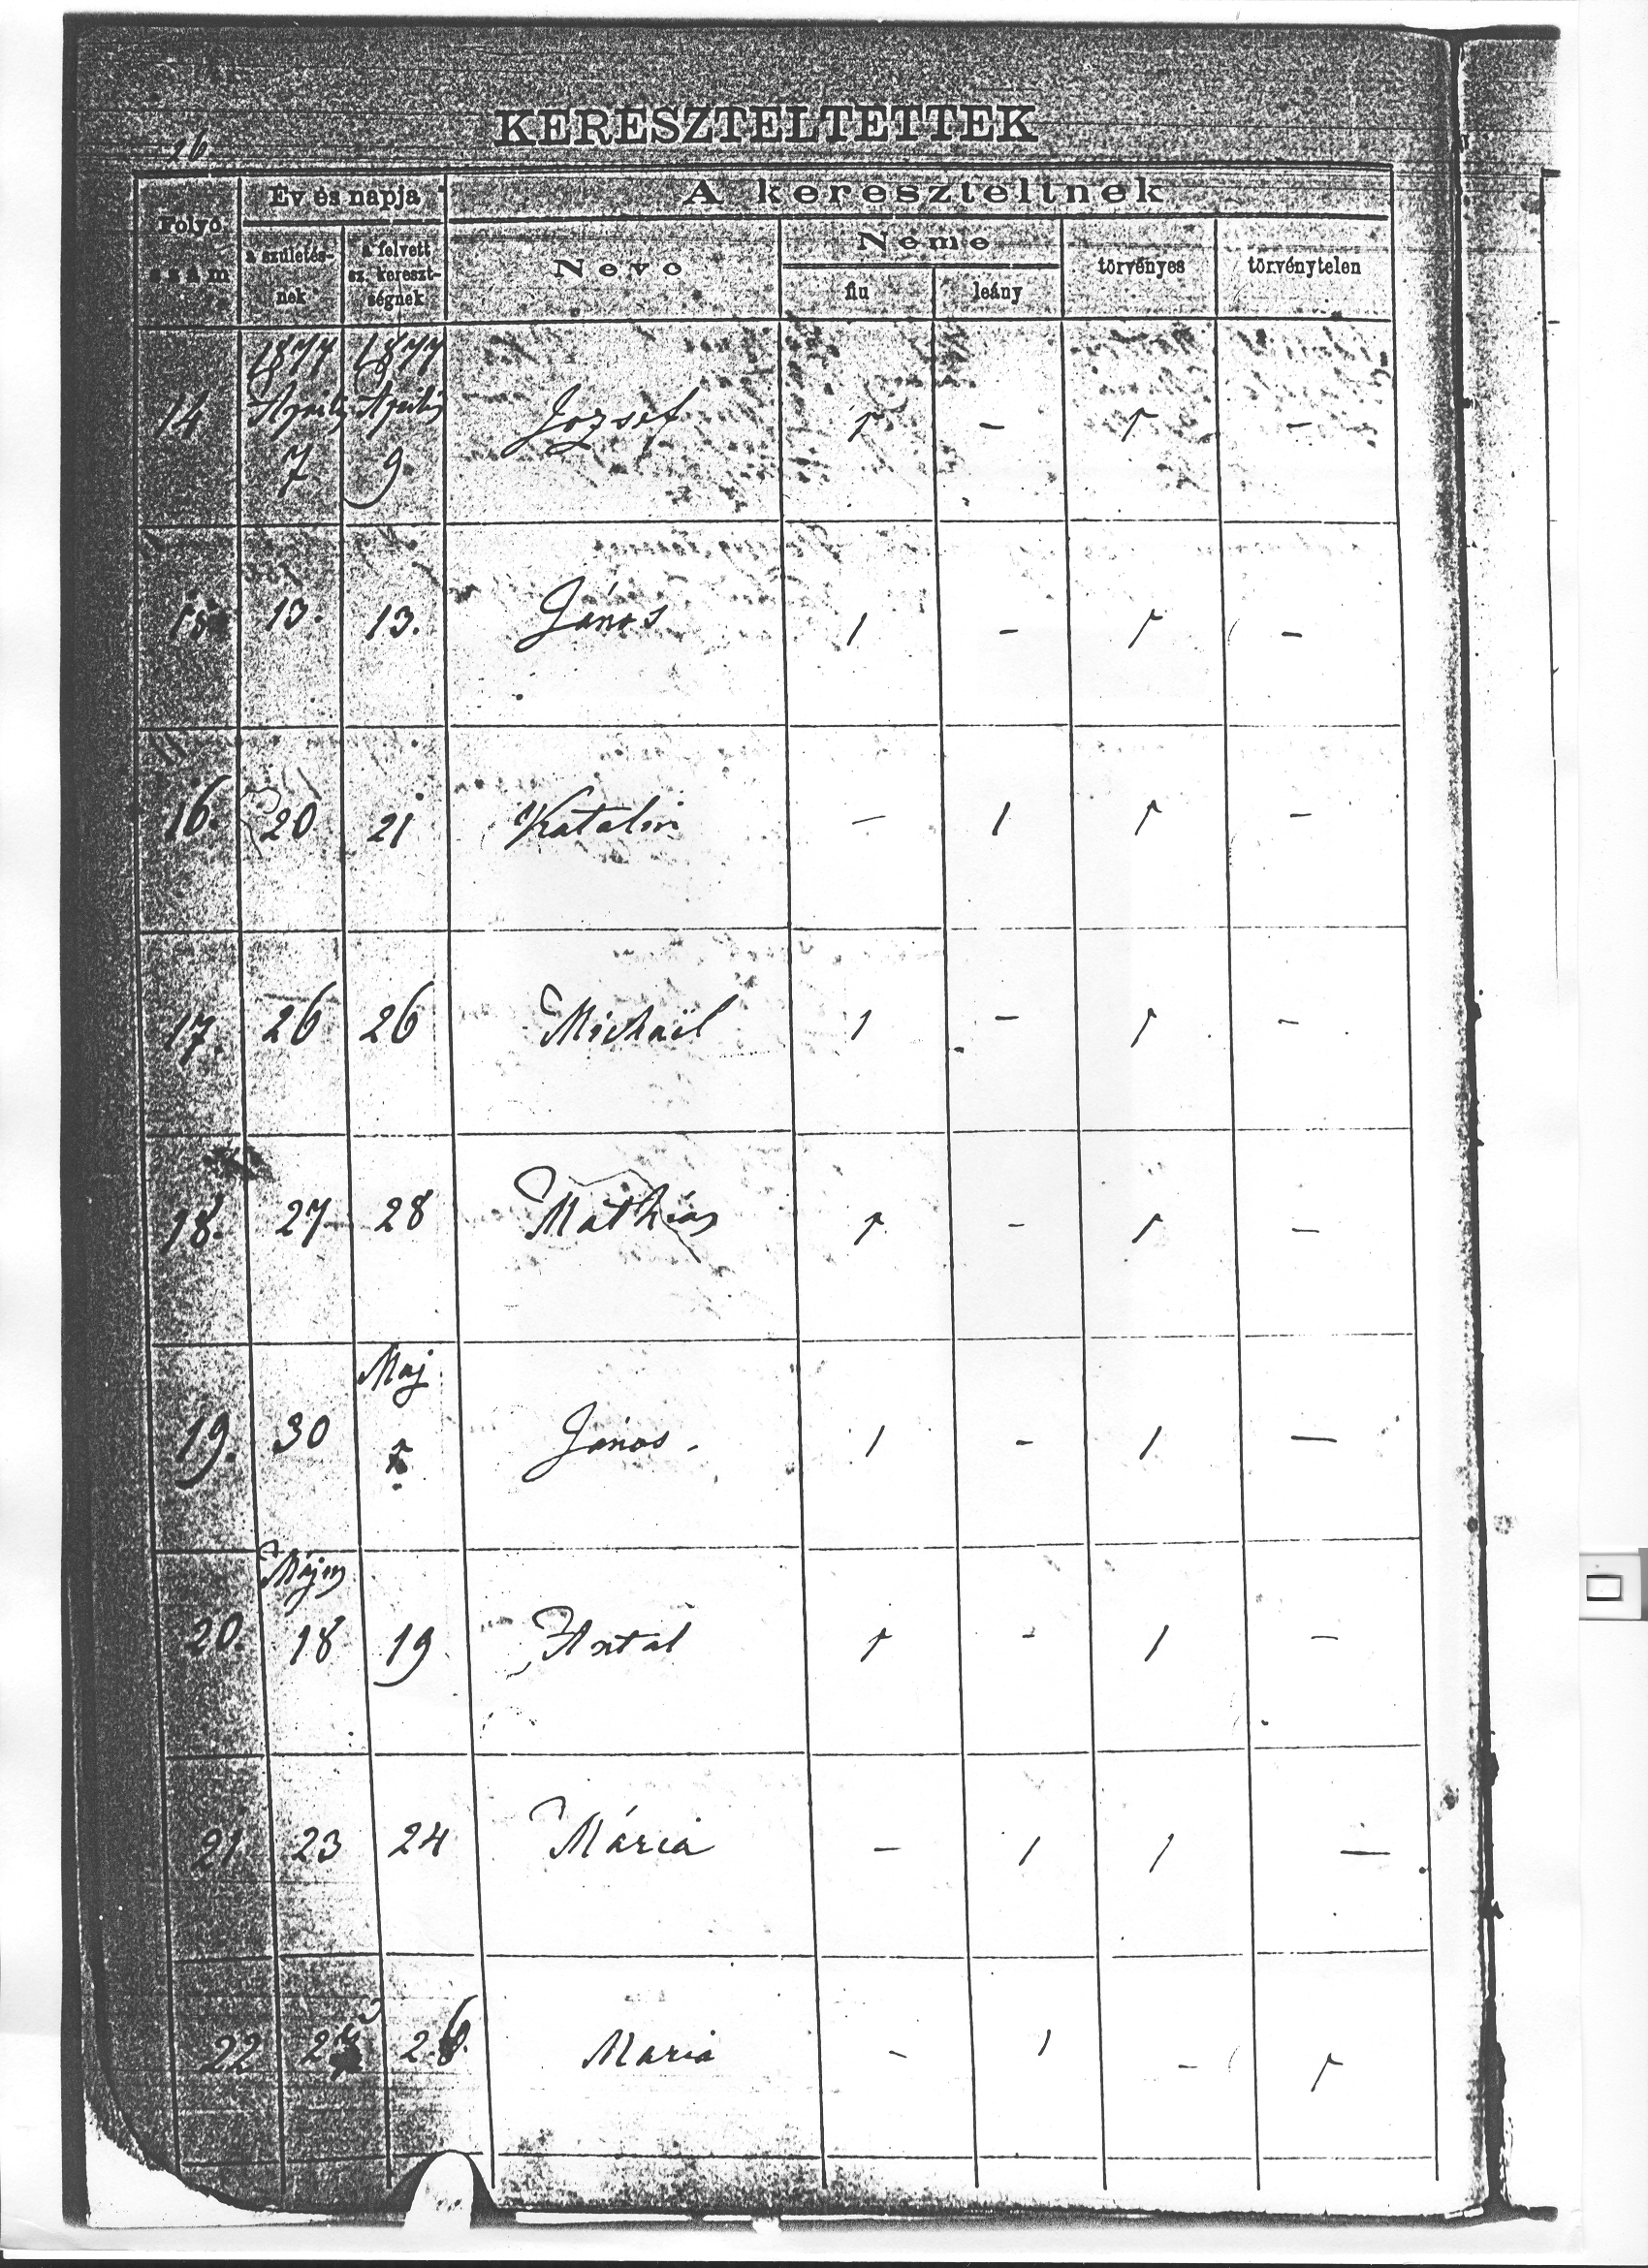 26
KERESZTELTETTEK
Folyó szám
Év és napja
A kereszteltnek
a születés-nek
a felvett sz. kereszt-ségnek
Neve
Neme
törvényes
törvénytelen
fiu
leány
1877 1877
14 Aprilis Aprilis József 1 – 1 –
7 9
15 13. 13. János 1 – 1 –
16. 20 21 Katalin – 1 1 –
17. 26 26 Michaël 1 – 1 –
18. 27 28 Mathias 1 – 1 –
Maj
19. 30 1 János. 1 – 1 –
Május
20. 18 19 Antal 1 – 1 –
21 23 24 Mária – 1 1 –
22 Maria – 1 – 1